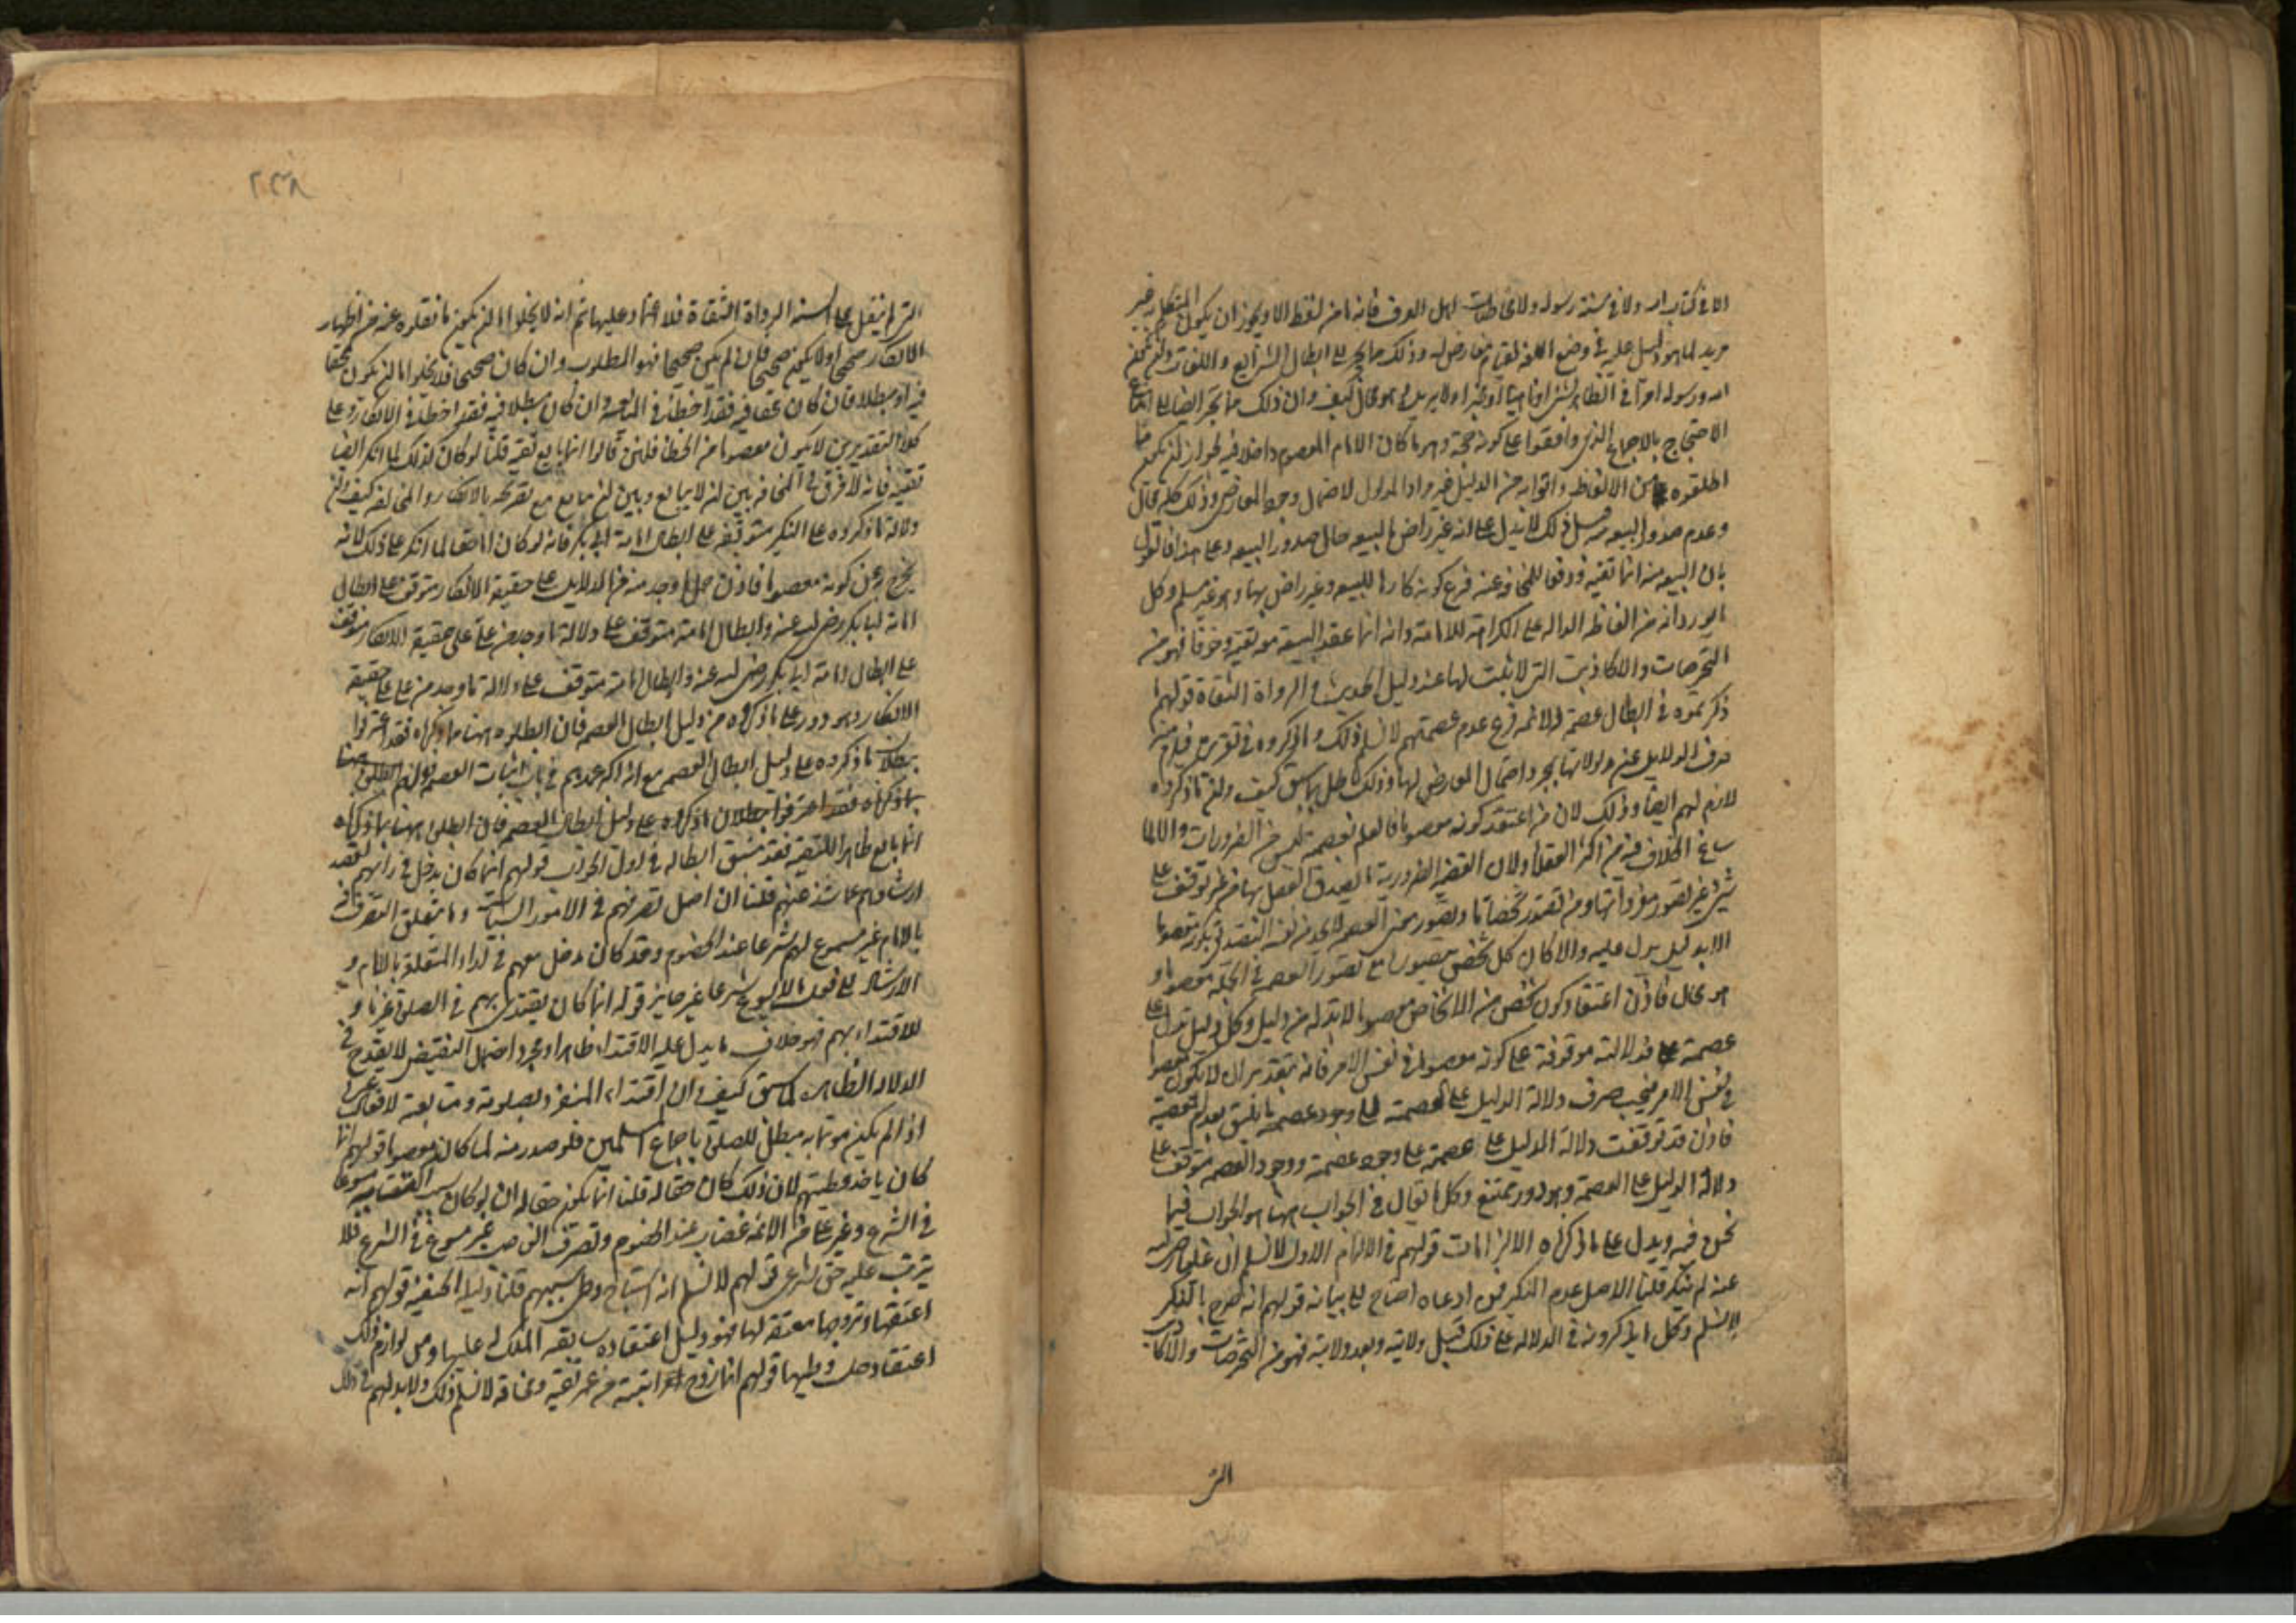 الا في كتاب الله ولا في سنة رسوله ولا في اهل العرف فانه ما من لفظ الا ويجوز ان يكون المتكلم غير
مريد لما هو دليل عليه في وضع اللغة وذلك مما يجر الى ابطال الشرايع واللغات
الله ورسوله امرا في الظاهر او ناهيا او مخبرا ولا يريد وهو محال كيف وان ذلك مما يجر ايضا الى
الاحتجاج بالاجماع الذي وافقوا على كونه حجة وهو ما كان الامام المعصوم داخلا فيه لجواز ان يكون ما
اطلقوه من الالفاظ واتوا به من الدليل غير مراد المدلول لاحتمال وجود المعارض وذلك كله محال
وعدم صدور البيعه قبل ذلك لا يدل على انه غير راض بالبيعه حال صدور البيعه وعلى هذا فالقول
بان البيعه منه انما تقية ودفعا للمخافة عنه فرع كونه كارها للبيعه وغير راض بها وهو غير مسلم وكل
ما يوردانه من الفاظ الداله على الكراهة للامامة وانه انما عقد البيعة معه تقية وخوفا فهو من
التخرصات والاكاذيب التي لا ثبت لها عند اهل الحديث والرواة الثقاة قولهم ما
ذكرتموه في ابطال عصمة الائمه فرع عدم عصمتهم لا نسلم ذلك وما ذكروه في تقريره فيلزم منه
صرف الدلايل عن مدلولاتها بمجرد احتمال المعارض لها وذلك باطل بما سبق كيف وان ما ذكروه
لازم لهم ايضا وذلك لان من اعتقد كونه معصوما فالعلم بعصمته ليس من الضروريات والا لما
ساغ الخلاف فيه من اكثر العقلاء ولان القضية الضرورية ما يصدق العقل بها من غير توقف على
شيء غير تصور مفرداتها ومن تصور شخصا ما وتصور معنى العصمه لا يجد من نفسه التصديق بكونه معصوما
الا بدليل يدل عليه والا كان كل شخص متصور مع تصور العصمه في الجملة معصوما و
هو محال فاذن اعتقاد كون شخص من الاشخاص معصوما لا بد له من دليل وكل دليل يدل على
عصمة فدلالته موقوفة على كونه معصوما في نفس الامر فانه بتقدير ان لا يكون معصوما
في نفس الامر فيجب صرف دلالة الدليل على العصمة الى وجود عصمة ما بعدم عصمته
فاذن قد توقفت دلالة الدليل على عصمة على وجود عصمة ووجود العصمه متوقف على
دلالة الدليل على العصمة وهو دور ممتنع وكل ما يقال في الجواب ههنا هو الجواب فيما
نحن فيه ويدل على ما ذكرناه الالزامات قولهم في الالزام الاول لا نسلم ان عليا رضي الله
عنه لم ينكر قلنا الاصل عدم النكير فمن ادعاه احتاج الى بيانه قولهم انه صرح بالنكير
لا نسلم وكل ما يذكرونه في الدلاله على ذلك قبل ولايته وبعد ولايته فهو من التخرصات والاكاذيب
التي
٢٣٨
التي لم ينقل على السنه الرواة الثقاة فلا اعتماد عليها ثم انه لا يخلو اما ان يكون ما نقلوه عنه من اظهار
الانكار صحيحا او لا يكون صحيحا فان لم يكن صحيحا فهو المطلوب وان كان صحيحا فلا يخلو اما ان يكون محقا
فيه او مبطلا فان كان محقا فيه فقد اخطأ في المبايعة وان كان مبطلا فيه فقد اخطأ في الانكار وعلى
كلا التقديرين لا يكون معصوما من الخطا فلئن قالوا انما بايع تقية قلنا لو كان كذلك لما انكر ايضا
تقية فانه لا فرق في المخافة بين ان لا يبايع وبين ان بايع مع تصريحه بالانكار والمخالفه كيف وان
دلالة ما ذكروه على النكير متوقفه على ابطال امامة ابي بكر فانه لو كان اماما حقا لما انكر على ذلك لانه
يخرج عن كونه معصوما فاذن حمل ما وجد منه من الدلايل على حقيقة الانكار متوقف على ابطال
امامة ابي بكر رضي الله عنه وابطال امامته متوقف على دلالة ما وجد من علي على حقيقة الانكار متوقف
على ابطال امامة ابي بكر رضي الله عنه وابطال امامته متوقف على دلالة ما وجد من علي على حقيقة
الانكار وهو دور على ما ذكروه من دليل ابطال العصمه فان ابطلوه ههنا بما ذكرناه فقد اعترفوا
ببطلان ما ذكروه على دليل ابطال العصمه مع انه اكبر عمدهم في باب اثبات العصمه
بما ذكرناه فقد اعترفوا ببطلان ما ذكروه على دليل ابطال العصمه فان ابطلوه ههنا بما ذكرناه
انما بايع ظاهرا للتقيه فقد سبق ابطاله في اول الجواب قولهم انما كان يدخل في رايهم لقصد
ارشادهم عما شذ عنهم قلنا ان اصل تصرفهم في الامور السياسات وما يتعلق التصرف فيه
بالامام غير مسموع لهم شرعا عند الخصوم وقد كان يدخل معهم في اراء المتعلقة بالامام و
الارشاد الى فعل ما لا يسوغ شرعا غير جايز قوله انما كان يقتدي بهم في الصلوة
للاقتداء بهم فهو خلاف ما يدل عليه الاقتداء ظاهرا ومجرد احتمال النقيض لا يقدح في
الدلالة الظاهرة كما سبق كيف وان اقتداء المنفرد بصلوته ومتابعته لافعال غيره
اذا لم يكن مؤتما به مبطل للصلوة باجماع المسلمين فلو صدر منه لما كان معصوما قولهم انما
كان ياخذ عطيتهم لان ذلك كان حقا له قلنا انما يكون حقا له ان لو كان مسوغا
في الشرع وغير علي من الائمه غاصب عند الخصوم وتصرف الغاصب غير مسوغ في الشرع فلا
يترتب عليه حق شرعي قولهم لا نسلم انه استباح وطئ سبيهم قلنا دليله الحنفية قولهم انه
اعتقها وتزوجها معتقة لها فهو دليل اعتقاده سابقه الملك له عليها ومن لوازم ذلك
اعتقاد حل وطيها قولهم انما زوج ابنته من عمر تقية ومخافة لا نسلم ذلك ولا بد لهم في ذلك